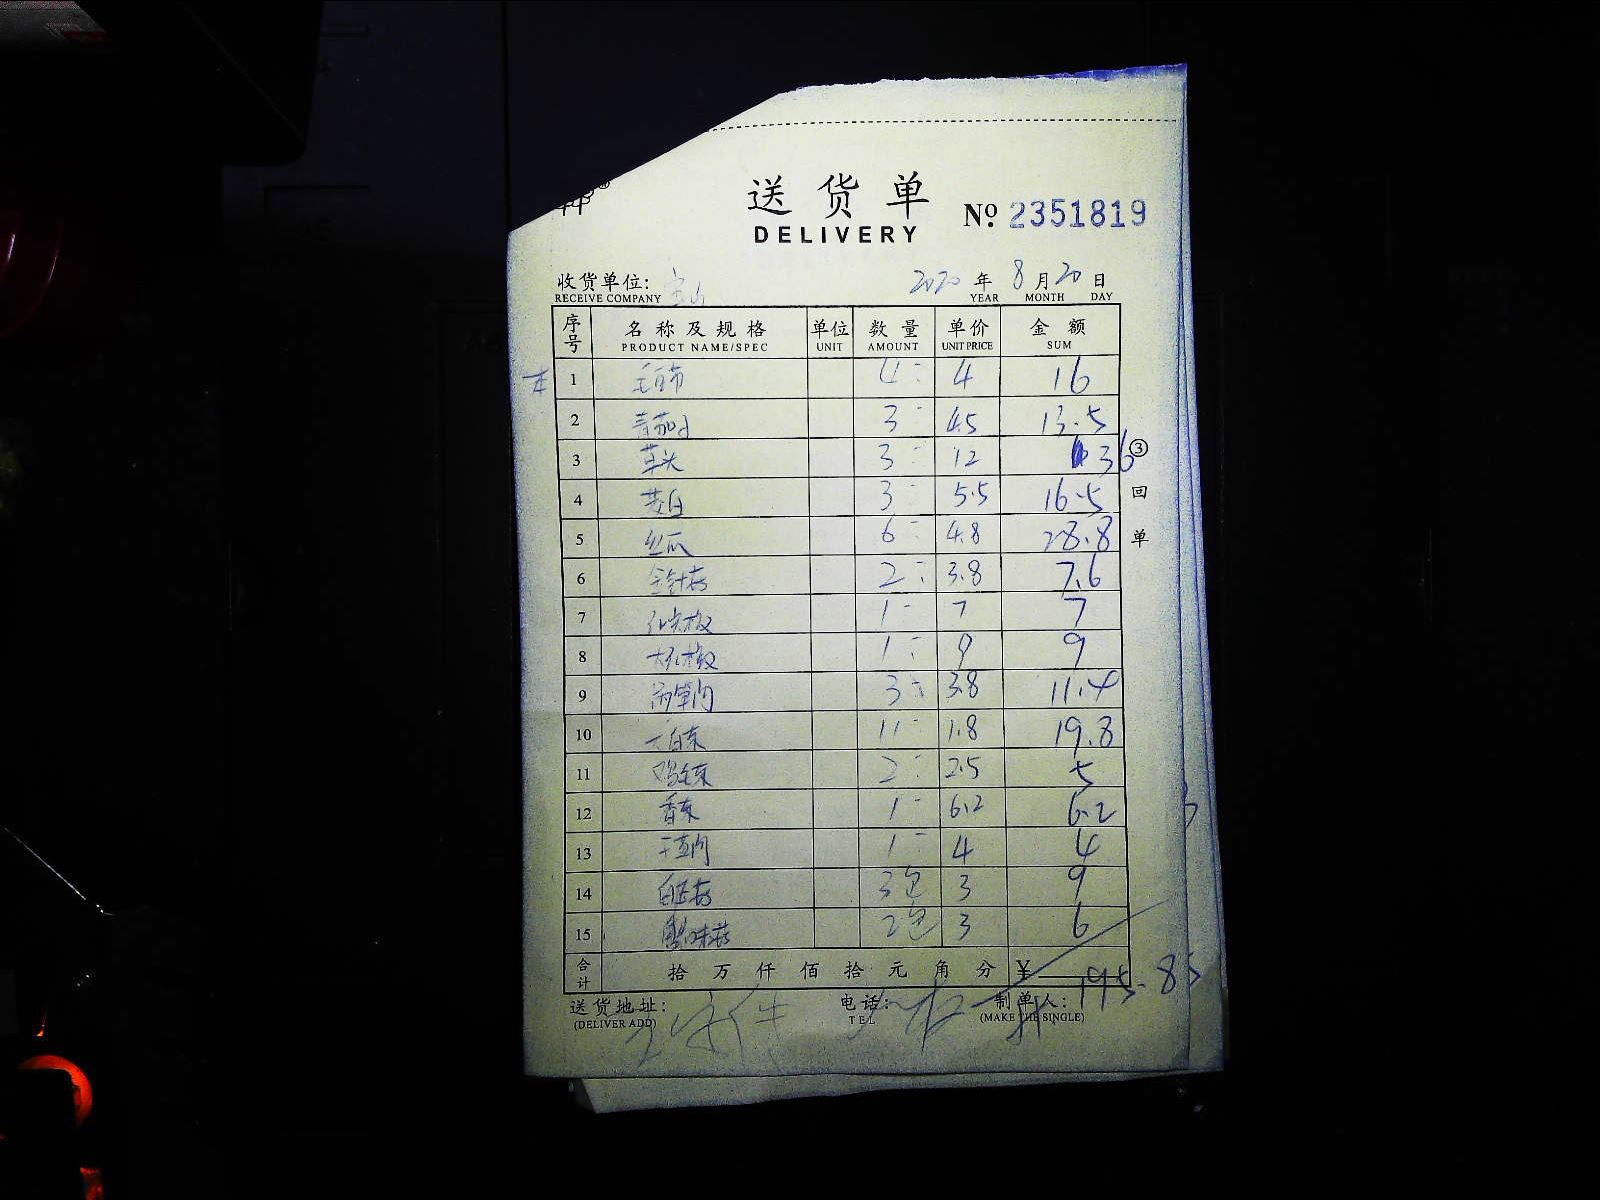 送货单
DELIVERY
№ 2351819
收货单位: 宝山 2020 年 8 月 20 日
RECEIVE COMPANY YEAR MONTH DAY
序号 名称及规格 单位 数量 单价 金额
PRODUCT NAME/SPEC UNIT AMOUNT UNIT PRICE SUM
1 4 4 16
2 3 4.5 13.5
3 草头 3 12 36
4 茭白 3 5.5 16.5
5 丝瓜 6 4.8 28.8
6 金针菇 2 3.8 7.6
7 红尖椒 1 7 7
8 大红椒 1 9 9
9 3 3.8 11.4
10 大白菜 11 1.8 19.8
11 鸡毛菜 2 2.5 5
12 香菜 1 6.2 6.2
13 1 4 4
14 白玉菇 3包 3 9
15 蟹味菇 2包 3 6
合计 拾 万 仟 佰 拾 元 角 分 ¥ 195.8
③ 回单
送货地址: 电话: 制单人:
(DELIVER ADD) TEL (MAKE THE SINGLE)